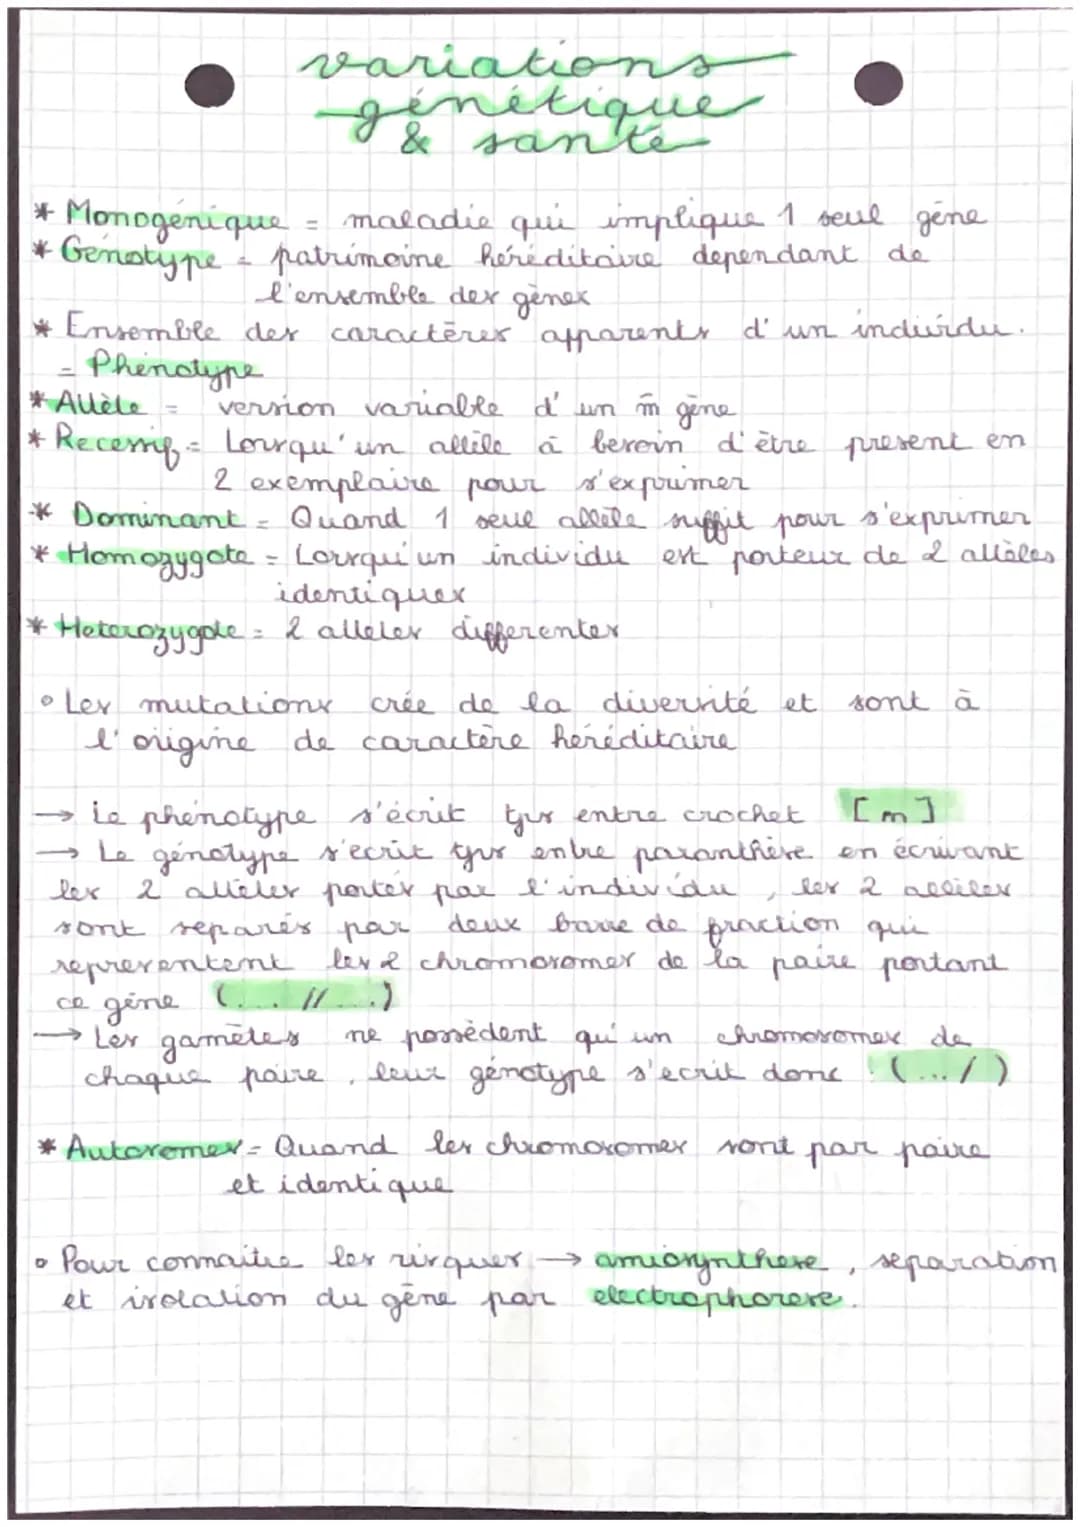 variations
génétique
& santé
* Monogénique = maladie qui implique 1 seul gène
* Génotype = patrimoine héréditaire dependant de
l'ensemble des gènes
* Ensemble des caractères apparents d'un individu.
= Phénotype
* Allèle = version variable d'un m̄ gène
* Recessif = Lorsqu'un allèle à besoin d'être présent en
2 exemplaire pour s'exprimer
* Dominant = Quand 1 seul allèle suffit pour s'exprimer
* Homozygote = Lorsqu'un individu est porteur de 2 allèles
identiques
* Heterozygote = 2 alleles differentes
• Les mutations crée de la diversité et sont à
l'origine de caractère héréditaire
→ Le phénotype s'écrit tjrs entre crochet [m]
→ Le génotype s'ecrit tjrs entre paranthèse en écrivant
les 2 alleles portés par l'individu, les 2 alleles
sont separés par deux barre de fraction qui
representent les 2 chromosomes de la paire portant
ce gène (... // ...)
→ Les gamètes ne possèdent qu'un chromosomes de
chaque paire, leur génotype s'ecrit donc : (.../)
* Autosomes = Quand les chromosomes sont par paire
et identique
• Pour connaitre les risques → amiosynthese, separation
et isolation du gène par electrophorese.